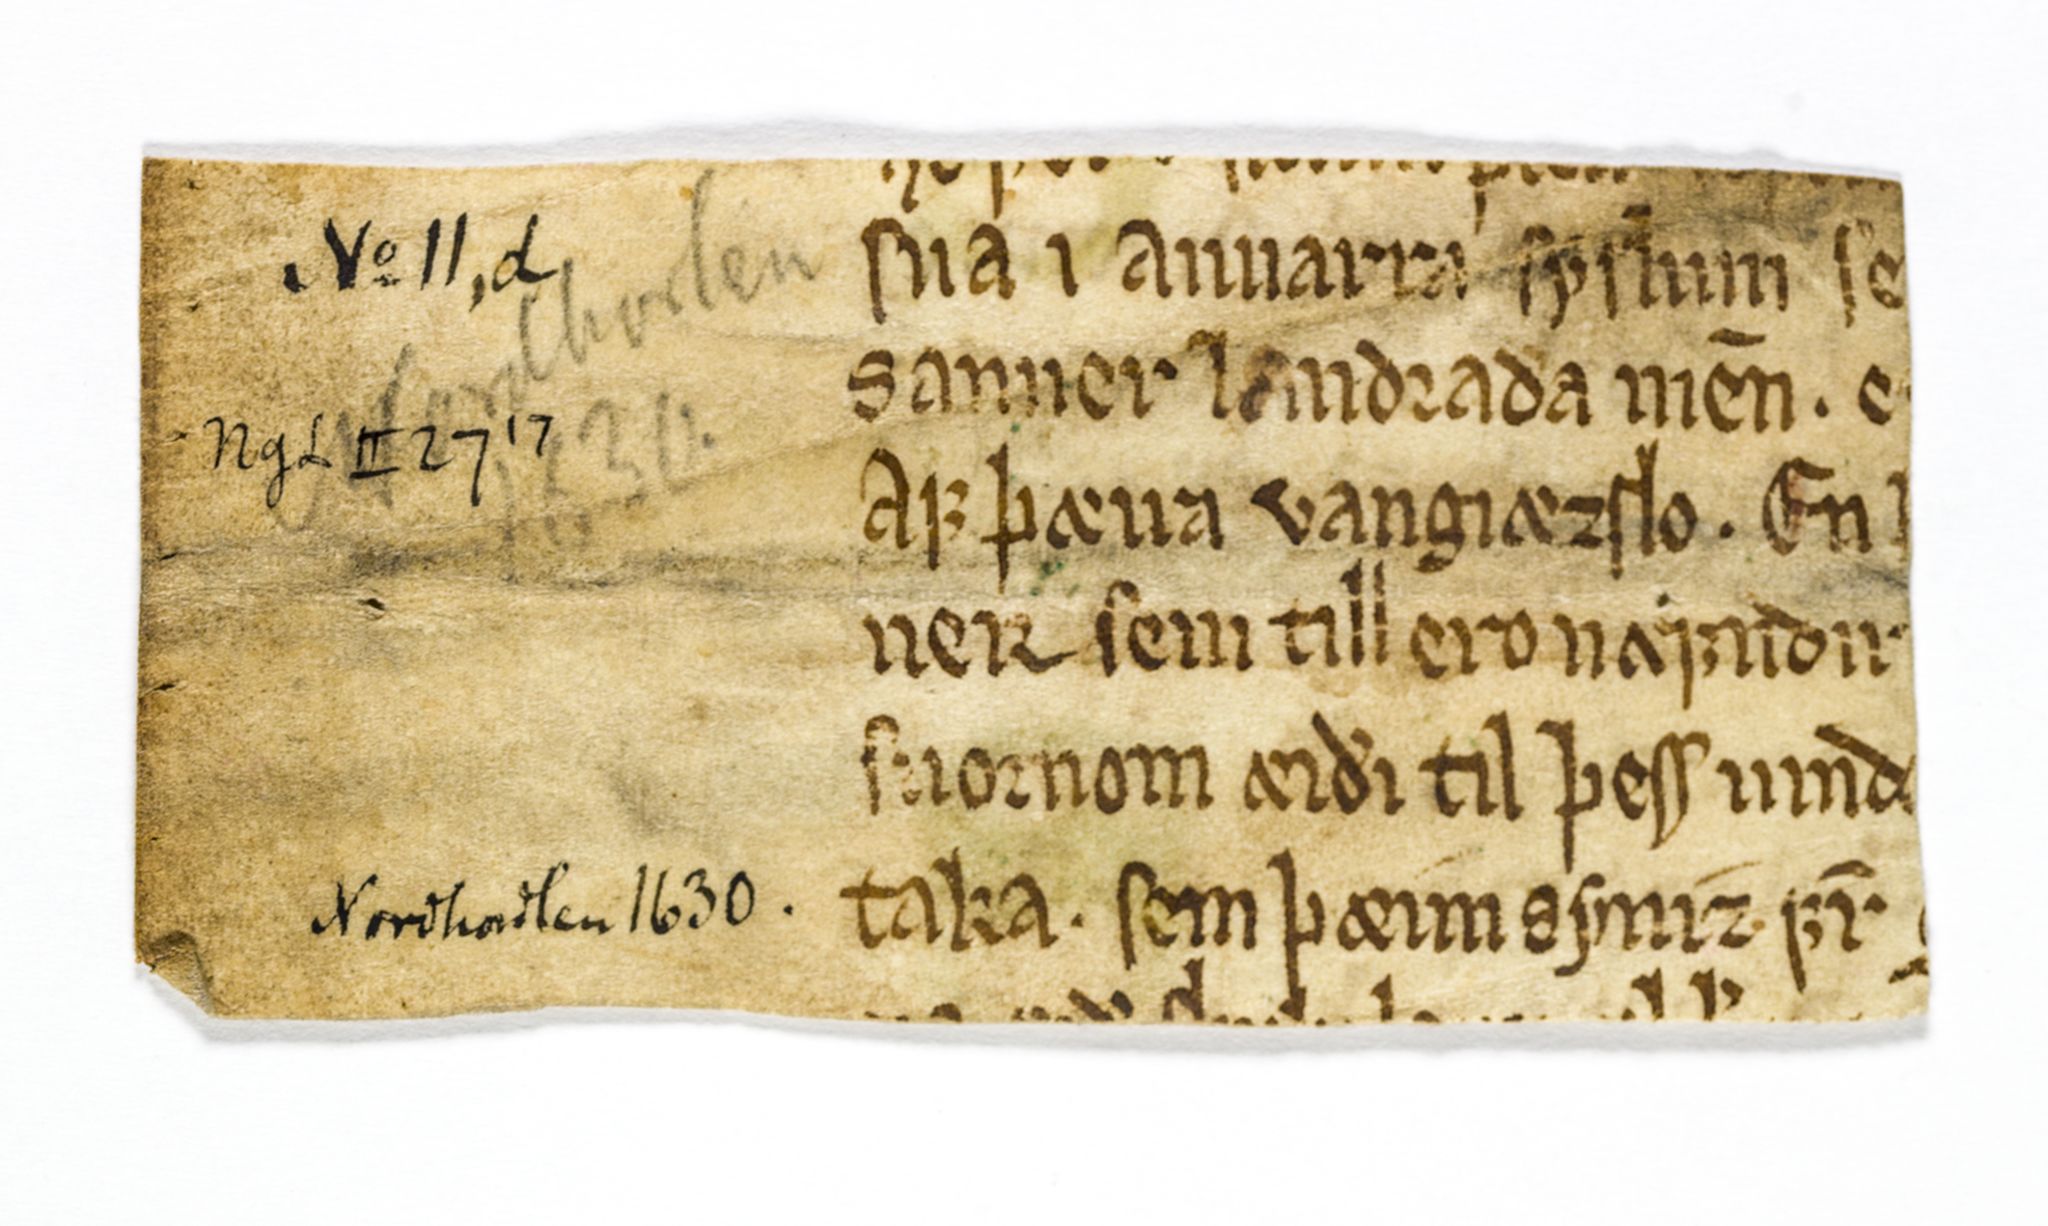 No 11, d
Nordhorlen
1630.
NgL II 27 17
Nordhordlen 1630.
sua i annarri sẏslum se
sanner landrada men̄. e
Aꝼ þæirra vangiæzslo. En
ner sem till ero næꝼndir
suornom æiði til þess uind
taka. sem þæim sẏniz ꝼir